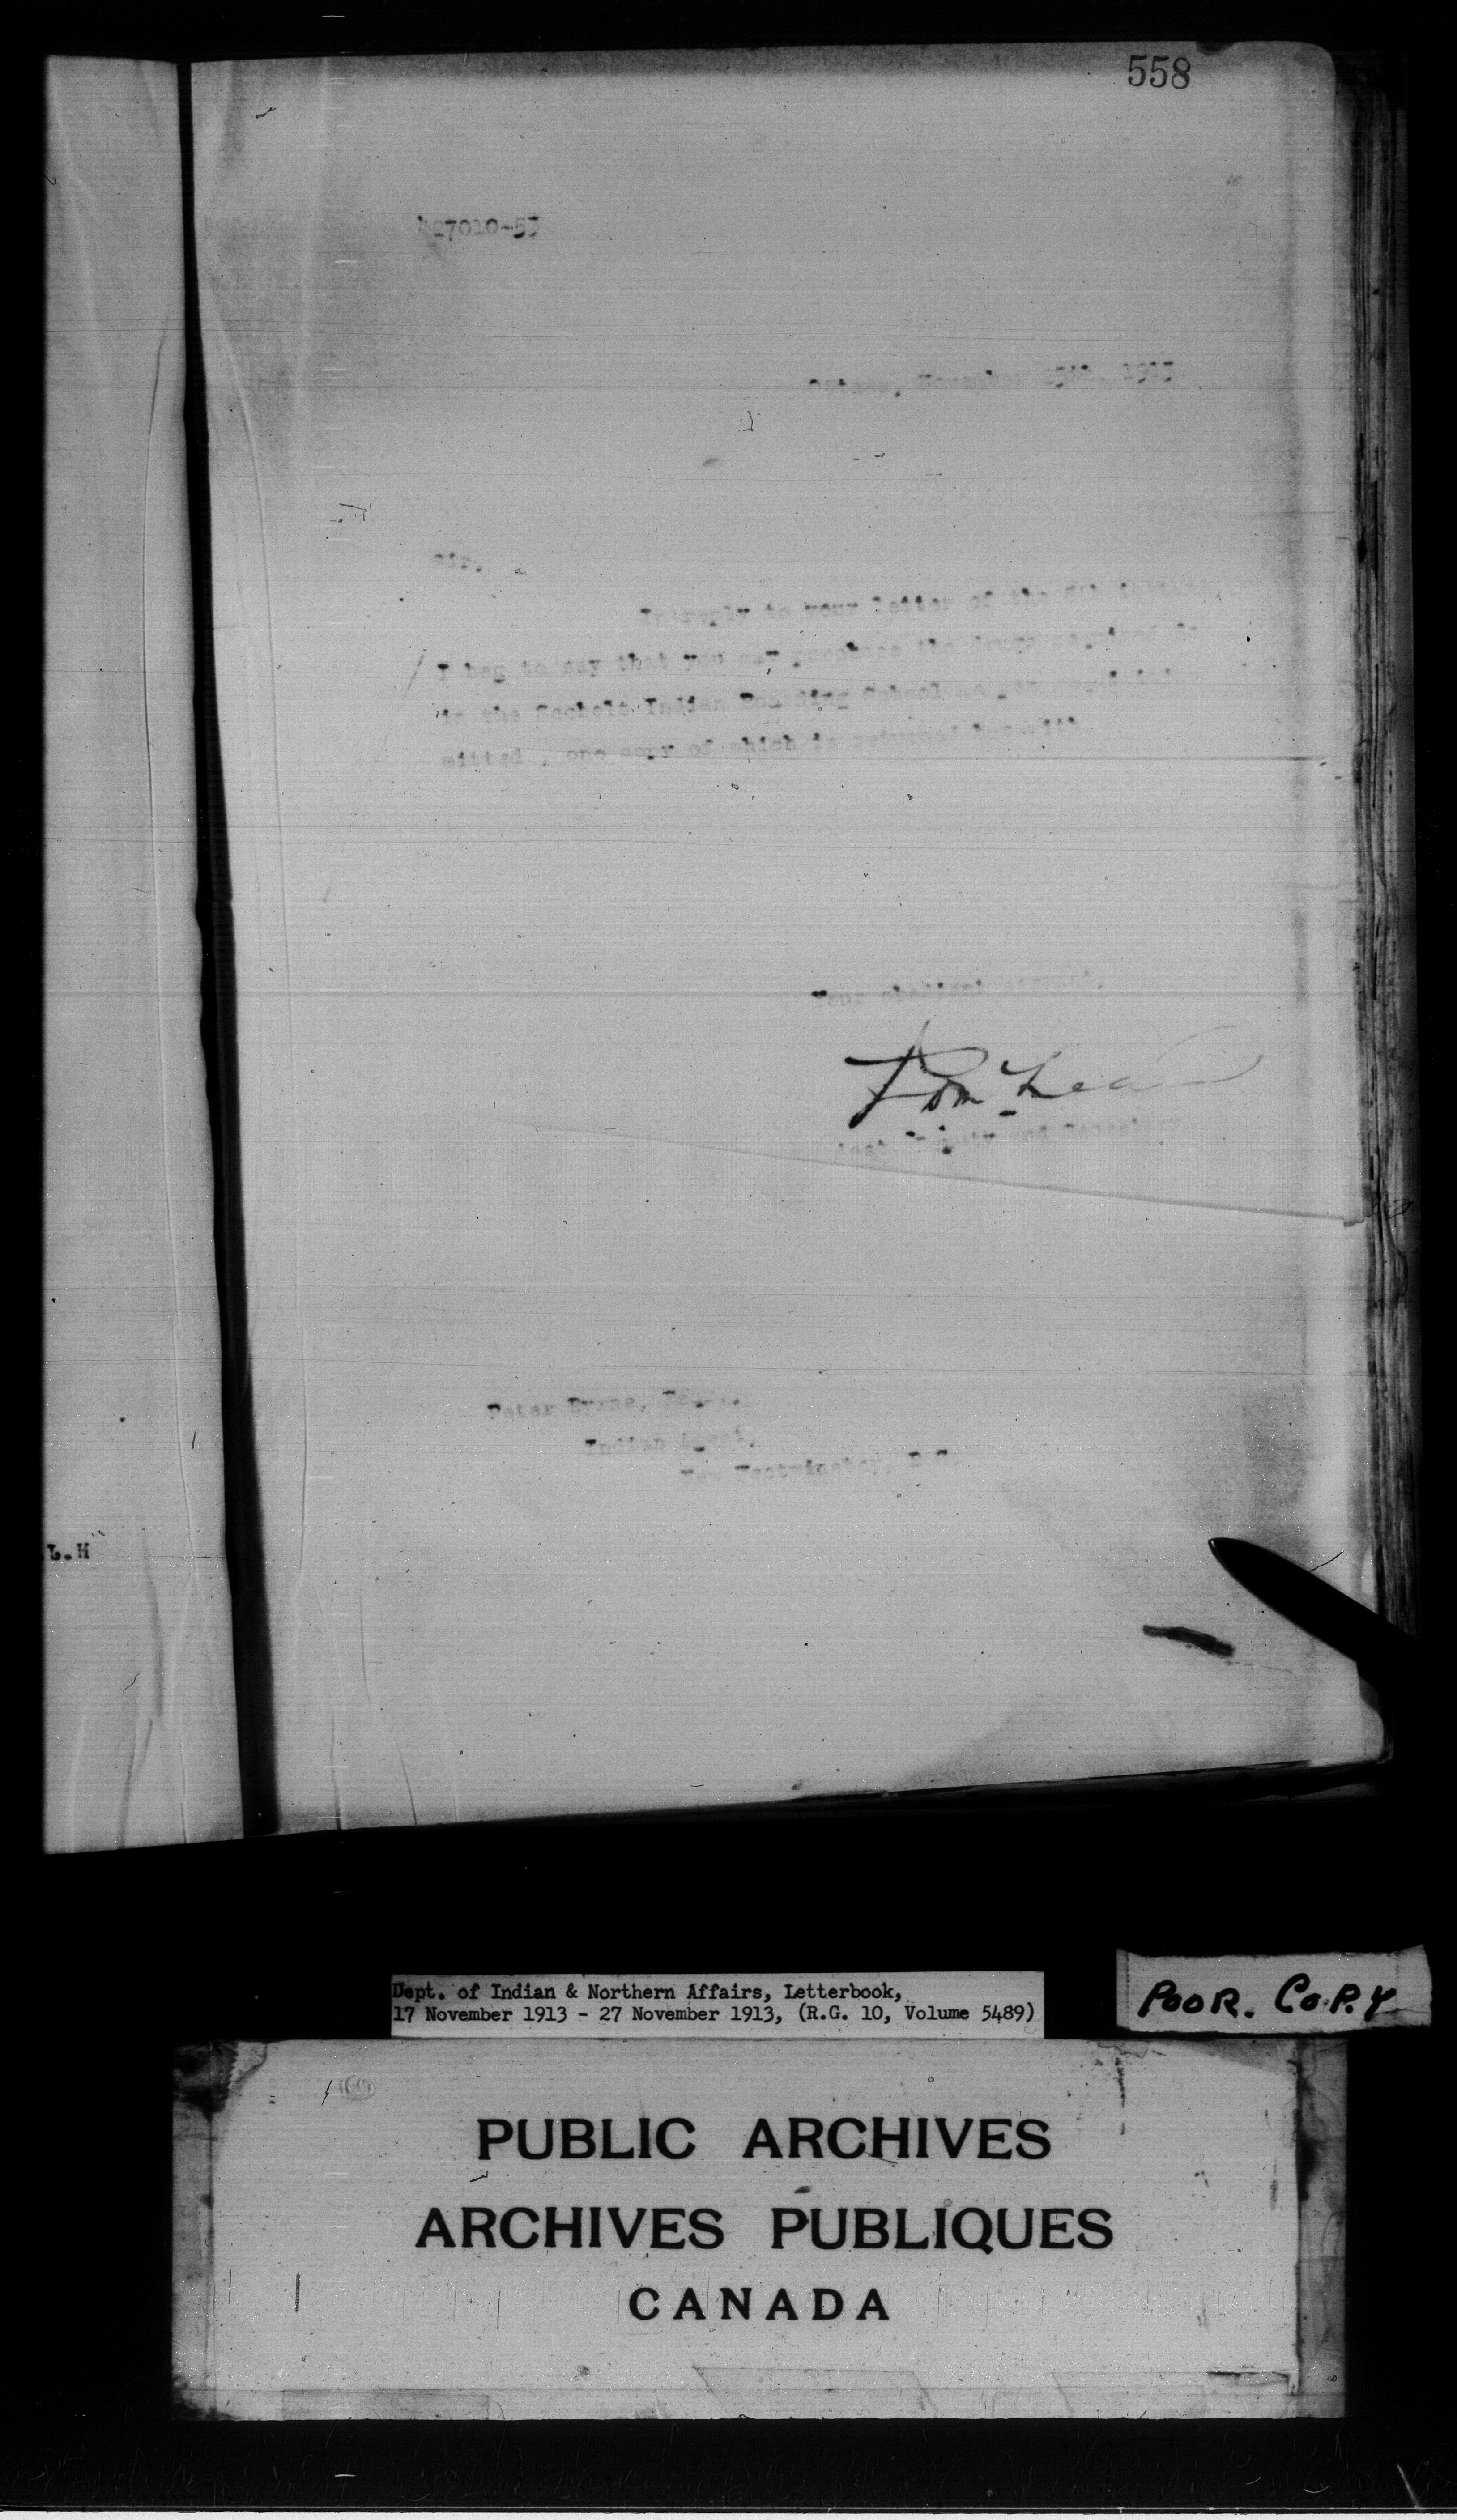 558
427010-57
Ottawa, November 25th, 1913.
Sir,
In reply to your letter of the
I beg to say that you may purchase the drugs required
in the Sechelt Indian Boarding School as per
mitted, one copy of which is returned herewith.
Your obedient servant,
Asst. Deputy and Secretary
Peter Byrne, Esqr.,
Indian Agent,
New Westminster, B.C.
L.M
Dept. of Indian & Northern Affairs, Letterbook,
17 November 1913 - 27 November 1913, (R.G. 10, Volume 5489)
POOR. COPY
PUBLIC ARCHIVES
ARCHIVES PUBLIQUES
CANADA